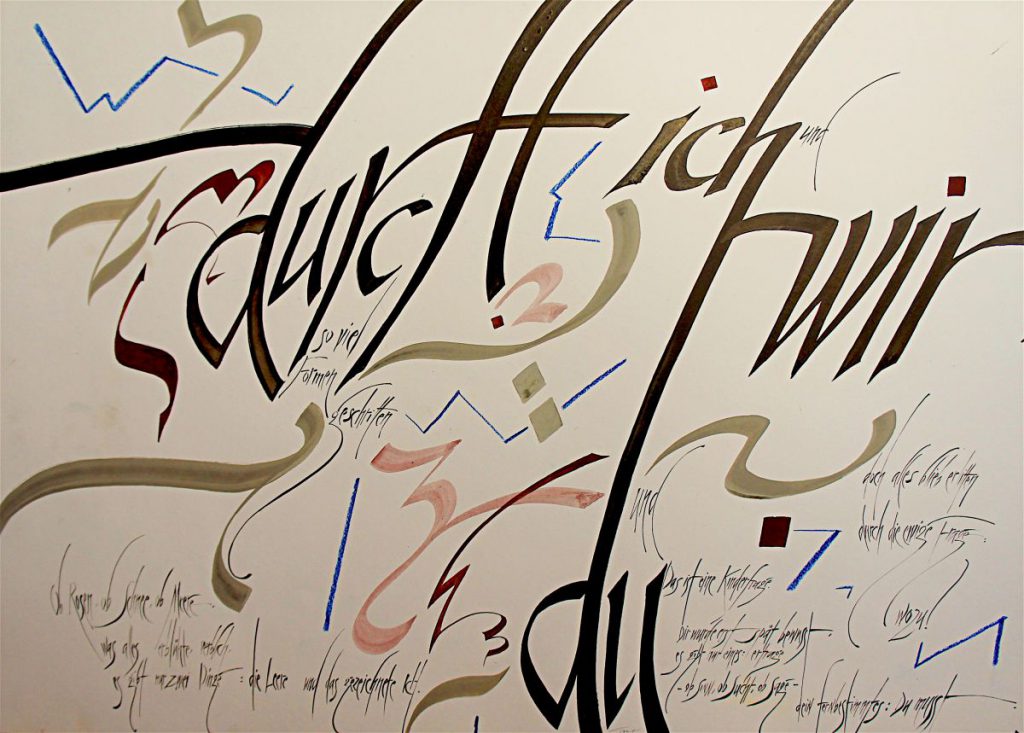 durch
so viel
Formen
geschritten
ich und
wir
und
du
doch alles blieb erlitten
durch die ewige Frage:
wozu
Das ist eine Kinderfrage.
Dir wurde erst spät bewusst.
es gibt nur eines: ertrage
- ob Sinn, ob Sucht, ob Sage -
dein fernbestimmtes: Du musst
Ob Rosen, ob Schnee, ob Meere
was alles erblühte, verblich.
es gibt nur zwei Dinge: die Leere und das gezeichnete Ich.